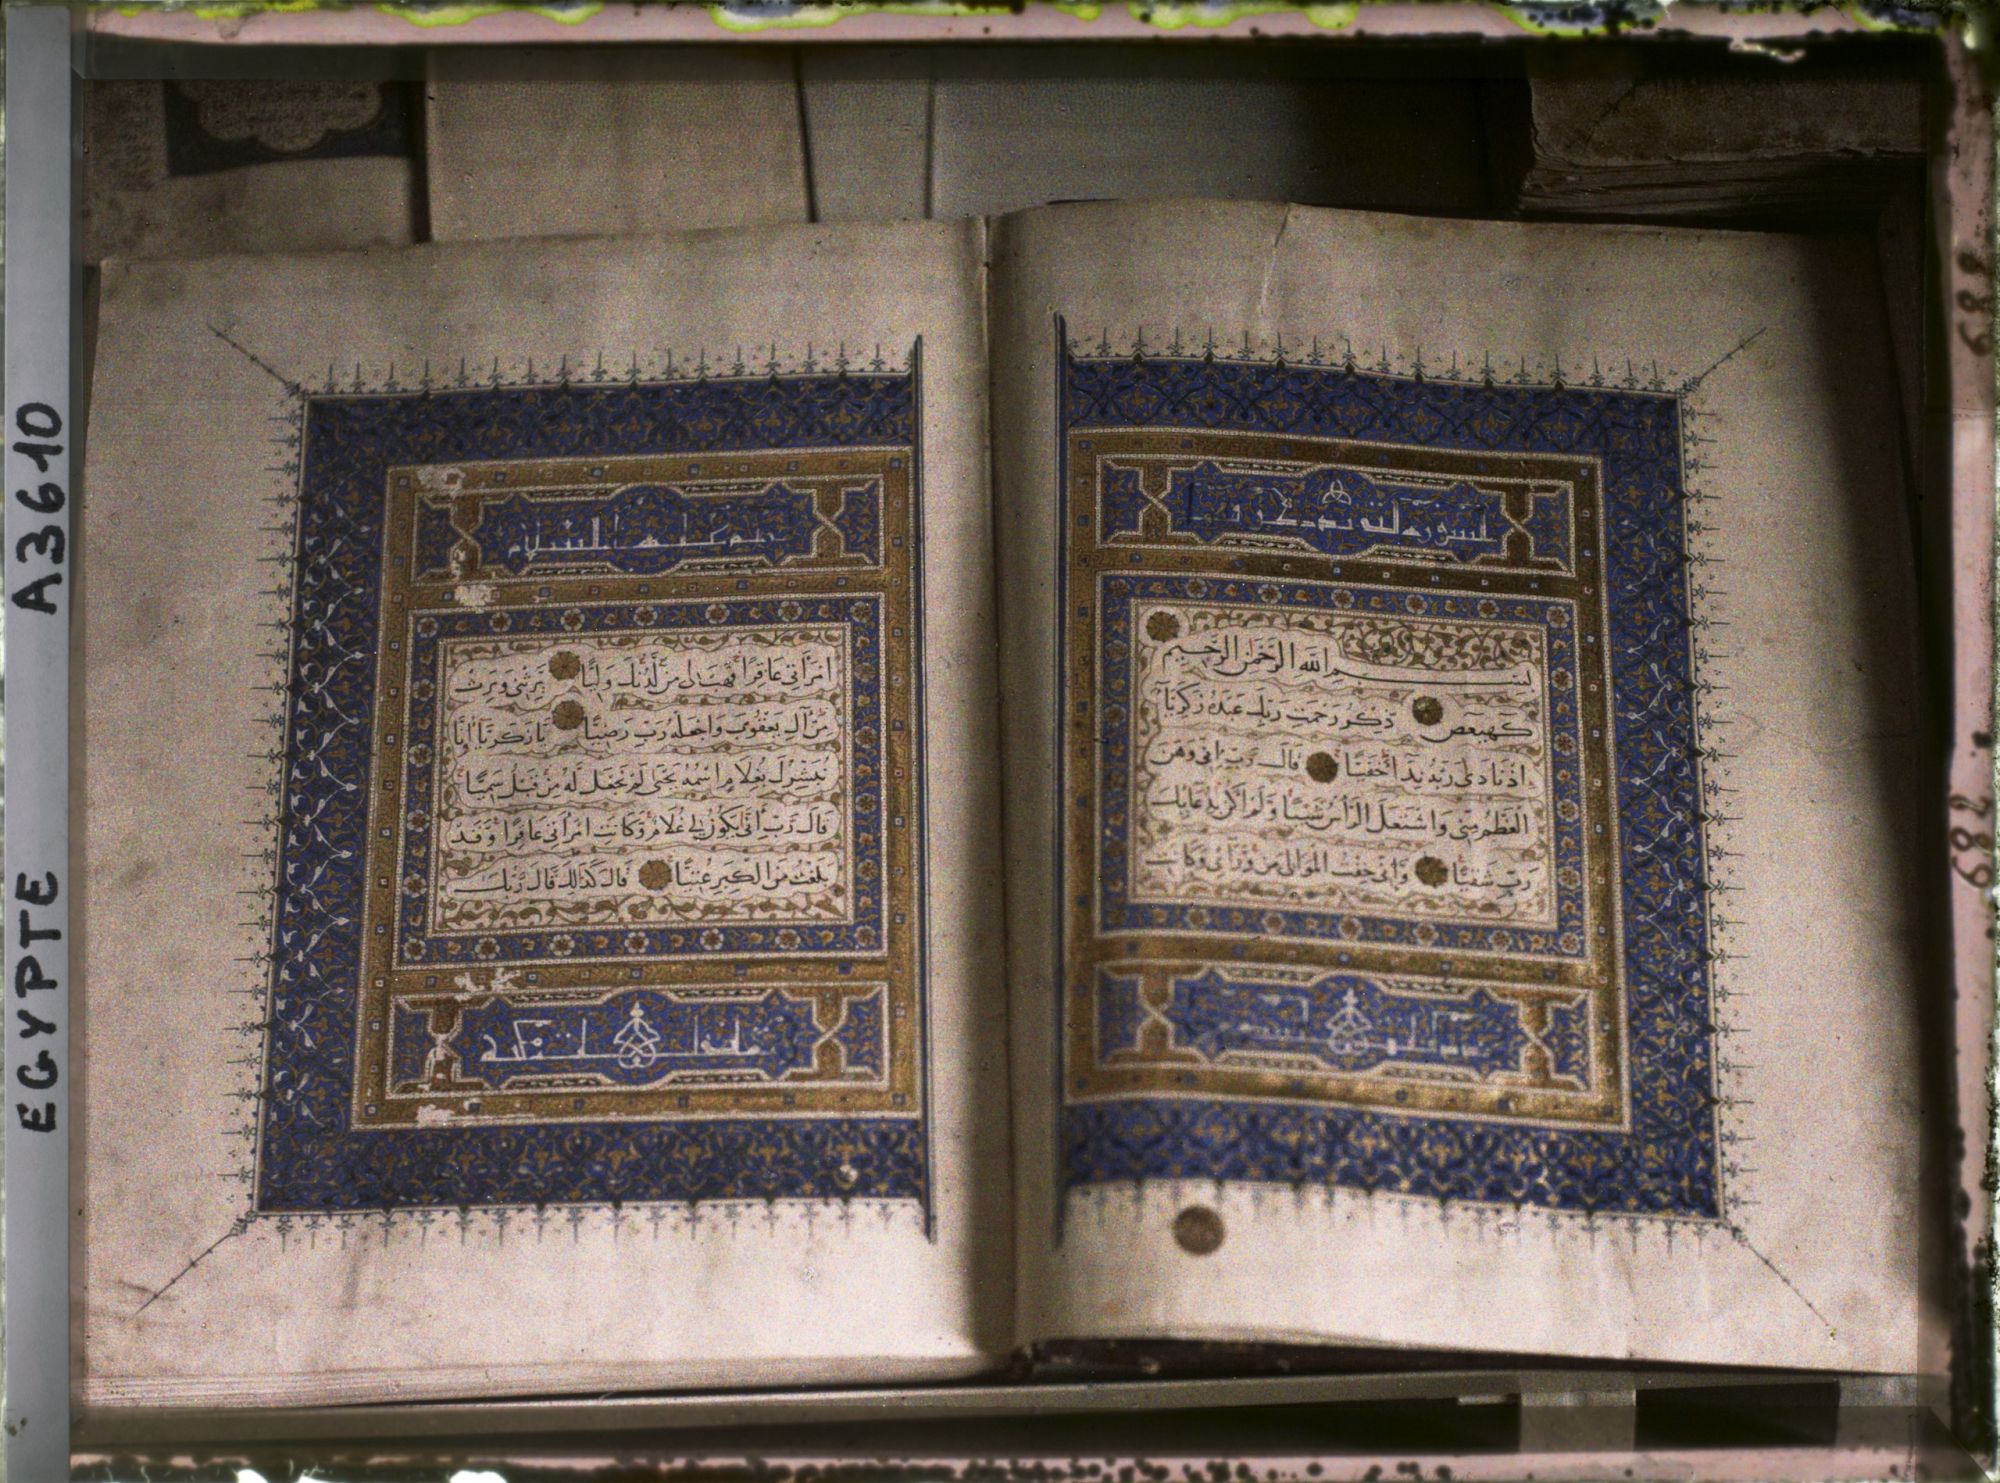 السورة التى تذكر فيها
بِسْمِ اللَّهِ الرَّحْمَنِ الرَّحِيمِ
كهيعص ذِكْرُ رَحْمَتِ رَبِّكَ عَبْدَهُ زَكَرِيَّا
اِذْ نَادَى رَبَّهُ نِدَاءً خَفِيًّا قَالَ رَبِّ اِنِّى وَهَنَ
الْعَظْمُ مِنِّى وَاشْتَعَلَ الرَّأْسُ شَيْبًا وَلَمْ اَكُنْ بِدُعَائِكَ
رَبِّ شَقِيًّا وَاِنِّى خِفْتُ الْمَوَالِىَ مِنْ وَرَائِى وَكَانَتِ
مريم عليها السلام
امْرَأَتِى عَاقِرًا فَهَبْ لِى مِنْ لَدُنْكَ وَلِيًّا يَرِثُنِى وَيَرِثُ
مِنْ آلِ يَعْقُوبَ وَاجْعَلْهُ رَبِّ رَضِيًّا يَا زَكَرِيَّا إِنَّا
نُبَشِّرُكَ بِغُلَامٍ اسْمُهُ يَحْيَى لَمْ نَجْعَلْ لَهُ مِنْ قَبْلُ سَمِيًّا
قَالَ رَبِّ أَنَّى يَكُونُ لِى غُلَامٌ وَكَانَتِ امْرَأَتِى عَاقِرًا وَقَدْ
بَلَغْتُ مِنَ الْكِبَرِ عِتِيًّا قَالَ كَذَلِكَ قَالَ رَبُّكَ
EGYPTE A3610
688
682